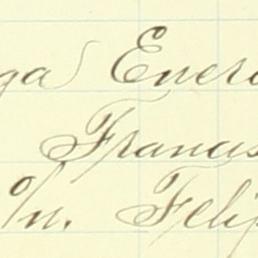 ga Enero
Francis
o/n. Felip